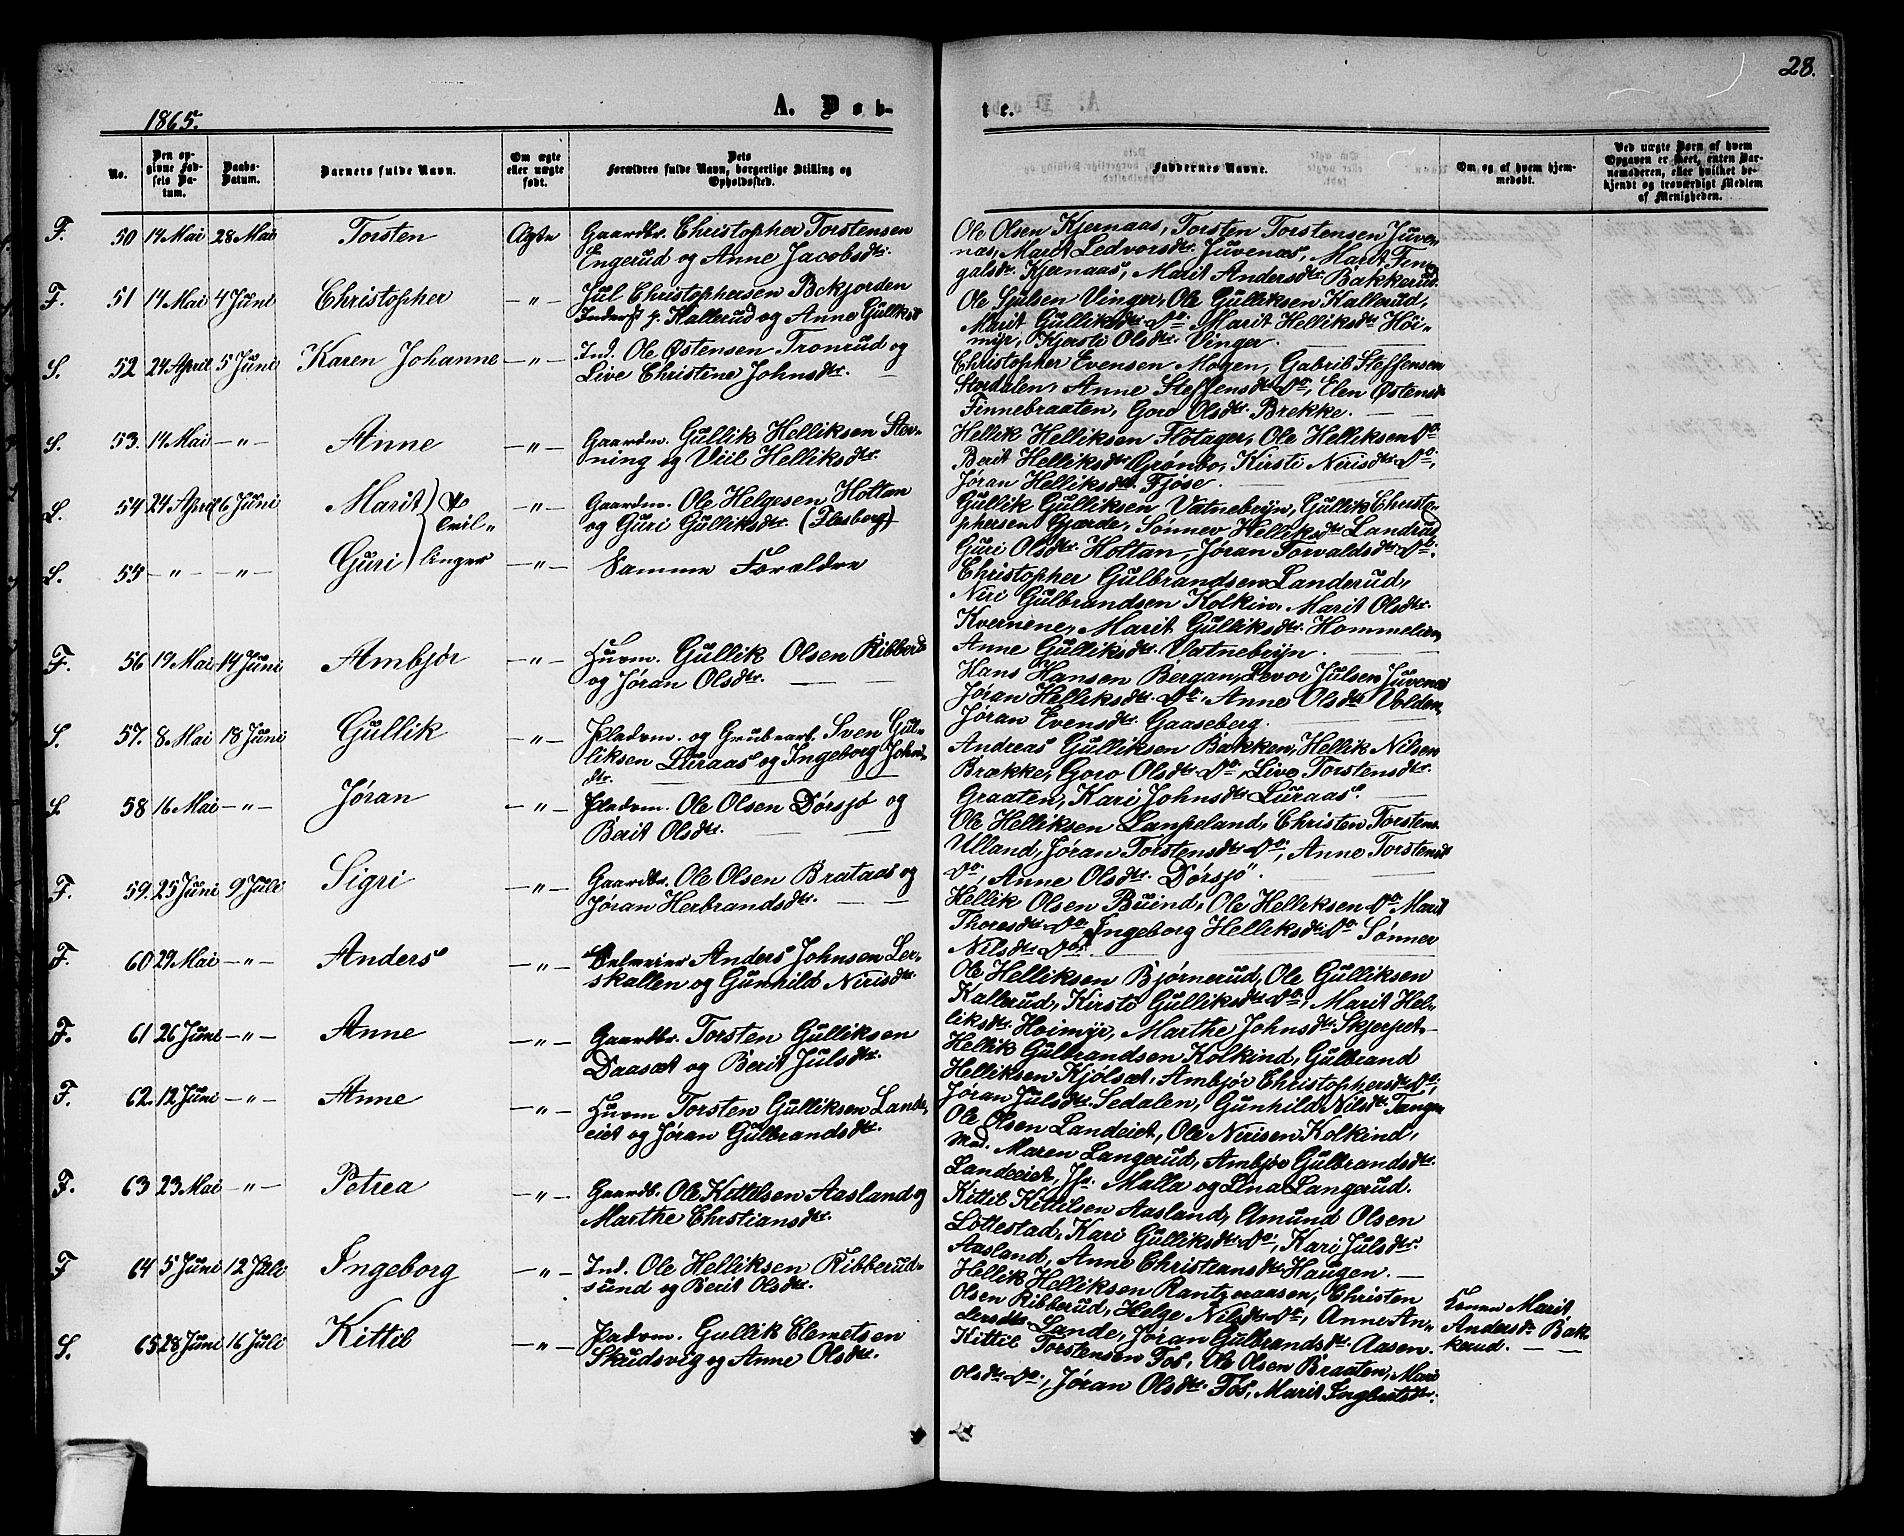 28.
1865.
A. Døb-
te.
No.
Den op-
givne Fød-
sels Da-
tum.
Daabs-
Datum.
Barnets fulde Navn.
Om ægte
eller uægte
født.
Dets
Forældres fulde Navn, borgerlige Stilling og
Opholdssted.
Faddernes Navne.
Om og af hvem hjem-
medøbt.
Ved uægte Børn af hvem
Opgaven er skeet, enten Bar-
nemoderen, eller hvilket be-
kjendt og troværdigt Medlem
af Menigheden.
F. 50 14 Mai 28 Mai Torsten Ægte Gaardbr. Christopher Torstensen
Engerud og Anne Jacobsdtr.
Ole Olsen Kjernaas, Torsten Torstensen Juve-
næs, Marit Ledvorsdtr. Juvenæs, Marit Fin-
galsdtr. Kjernaas, Marit Andersdtr. Bakkerud.
F. 51 14 Mai 4 Juni Christopher —"— Jul Christophersen Bekjorden
Inderst p. Kallerud og Anne Gulliksdtr
Ole Sjulsen Vinger, Ole Gulliksen Kallerud,
Marit Gulliksdtr Do. Marit Helliksdtr Høi-
myr, Kjersti Olsdtr. Vinger.
S. 52 24 April 5 Juni Karen Johanne —"— Ind. Ole Østensen Tronrud og
Live Christene Johnsdtr.
Christopher Evensen Mogen, Gabril Steffensen
Stordalen, Anne Steffensdtr Do, Elen Østensdtr
Finnebraaten, Goro Olsdtr. Brekke.
S. 53. 14 Mai —"— Anne —"— Gaardm. Gullik Helliksen Stov-
ning og Viil Helliksdtr.
Hellik Helliksen Flotager, Ole Helliksen Do
Berit Helliksdtr Grønbo, Kirsti Nerisdtr Do,
Jøran Helliksdtr Fjøse.
L. 54 24 April 6 Juni Marit —"— Gaardm. Ole Helgesen Holtan
og Guri Gulliksdtr. (Flesberg)
Tvil-
linger
Gullik Gulliksen Vatnebryn, Gullik Christo-
phersen Gjærde, Sønnev Helliksdtr Landraas
Guri Olsdtr. Holtan, Jøran Torvaldsdtr Do.
L. 55 —"— —"— Guri —"— Samme Forældre
Christopher Gulbrandsen Landerud,
Niri Gulbrandsen Kolkin, Marit Olsdtr.
Kvernene, Marit Gulliksdtr. Hommelien
Anne Gulliksdtr. Vatnebryn.
F. 56 19 Mai 14 Juni Ambjør —"— Huvm. Gullik Olsen Ribberud
og Jøran Olsdtr.
Hans Hansen Bergan, Levor Julsen Juvenæs
Jøran Helliksdtr. Do. Anne Olsdtr Volden,
Jøran Evensdtr. Gaaseberg.
S. 57. 8. Mai 18 Juni Gullik —"— Pladsm. og Grubearb. Sven Gul-
liksen Luraas og Ingeborg Johns-
dtr.
Andreas Gulliksen Bakken, Hellik Nilsen
Brække, Goro Olsdtr Do, Live Torstensdtr.
Graaten, Kari Johnsdtr Luraas.
S. 58 16 Mai —"— Jøran —"— Pladsm. Ole Olsen Dørsjø og
Berit Olsdtr.
Ole Helliksen Lampeland, Christen Torstens.
Ulland, Jøran Torstensdtr Do, Anne Torstensdt
Do, Anne Olsdtr. Dørsjø.
F. 59. 25 Juni 9 Juli Sigri —"— Gaardbr. Ole Olsen Brataas og
Jøran Herbrandsdtr.
Hellik Olsen Buind, Ole Helliksen Do Marit
Thoresdtr Do Ingeborg Helliksdtr Do Sønnev
Nilsdtr Do.
F. 60 29 Mai —"— Anders —"— Selveier Anders Johnsen Ler-
skallen og Gunhild Nirisdtr.
Ole Helliksen Bjørnerud, Ole Gulliksen
Kallerud, Kirsti Gulliksdtr Do, Marit Hel-
liksdtr. Hoimyr, Marthe Johnsdtr Skjerpet-
F. 61 26 Juni —"— Anne —"— Gaardbr. Torsten Gulliksen
Daaset og Berit Julsdtr.
Hellik Gulbrandsen Kolkind, Gulbrand
Helliksen Kjølset, Ambjør Christophersdtr Do,
Jøran Julsdtr. Sedalen, Gunhild Nilsdtr. Tangen
F. 62. 12 Juni —"— Anne —"— Huvm Torsten Gulliksen Lande-
eiet og Jøran Gulbrandsdtr.
Ole Olsen Landeiet, Ole Nerisen Kolkind,
Mad. Maren Langerud, Ambjør Gulbrandsdtr.
Landeeiet, Jfr. Malla og Lina Langerud.
F. 63 23 Mai —"— Petrea —"— Gaardb. Ole Kittilsen Aasland og
Marthe Chrstiansdtr.
Kittil Kittilsen Aasland, Amund Olsen
Lottestad, Kari Gulliksdtr Do, Kari Julsdtr.
Aasland, Anne Christiansdtr Haugen.
F 64 5 Juni 12 Juli Ingeborg —"— Ind. Ole Helliksen Ribberud-
sund og Berit Olsdtr.
Hellik Helliksen Rantzeraasen, Christen
Olsen Ribberud, Helge Nilsdtr Do, Anne An-
dersdtr Lande, Jøran Gulbrandsdtr Aasen.
Konen Marit
Andersdtr Bak-
kerud.
S. 65 28 Juni 16 Juli Kittil —"— Pladsm. Gullik Clemetsen
Skudsvig og Anne Olsdtr.
Kittil Torstensen Fos, Ole Olsen Braaten, Mari
Olsdtr Do, Jøran Olsdtr. Fos, Marit Ingbretsdtr.